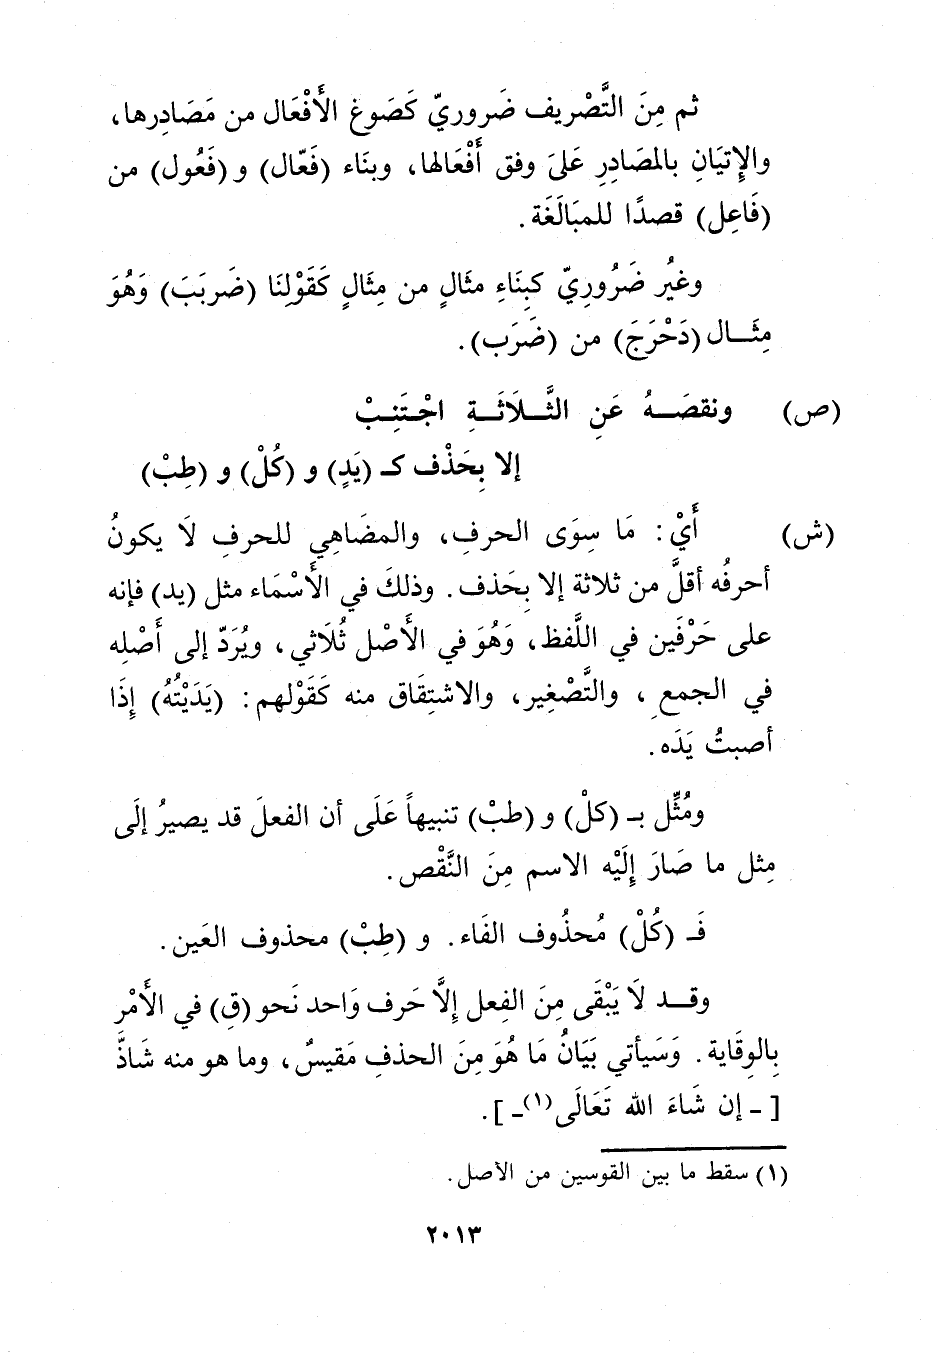 ثم مِنَ التَّصْريف ضَروريّ كَصَوغ الأَفْعَال من مَصَادِرها،
والإِتيَانِ بالمصَادِرِ عَلىَ وفق أَفْعَالها، وبنَاء (فَعّال) و (فَعُول) من
(فَاعِل) قصدًا للمبَالَغَة.
وغيُر ضَرُوريّ كبِنَاءِ مثَالٍ من مِثَالٍ كَقَوْلِنَا (ضَربَبَ) وَهُوَ
مِثَـــال (دَحْرَجَ) من (ضَرَب).
(ص) ونقصَـــهُ عَنِ الثَّـــلاَثَـــةِ اجْـتَنِـبْ
إلا بِحَذْف كـ (يَدٍ) و (كُلْ) و (طِبْ)
(ش) أَيْ: مَا سِوَى الحرفِ، والمضَاهِي للحرفِ لَا يكونُ
أحرفُه أقلَّ من ثلاثة إلا بِحَذف. وذلكَ في الأَسْمَاء مثل (يد) فإنه
على حَرْفَين في اللَّفظ، وَهُوَ في الأَصْل ثُلَاثي، ويُرَدّ إلى أَصْلِه
في الجمعِ، والتَّصْغِير، والاشتِقَاق منه كَقَوْلهم: (يَدَيْتُهُ) إِذَا
أصبتُ يَدَه.
ومُثِّل بـ (كلْ) و (طبْ) تنبيهاً عَلَى أن الفعلَ قد يصيرُ إلَى
مِثل ما صَارَ إِلَيْه الاسم مِنَ النَّقْص.
فَـ (كُلْ) مُحذُوف الفَاء. و (طِبْ) محذوف العَين.
وقـــد لَا يَبْقَى مِنَ الفِعل إِلَّا حَرف وَاحد نَحو (قِ) في الأَمْر
بِالوِقَاية. وَسَيأتي بَيَانُ مَا هُوَ مِنَ الحذفِ مَقيسٌ، وما هو منه شَاذَّ
[ - إن شَاءَ الله تَعَالَى(١)-].
(١) سقط ما بين القوسين من الأصل.
٢٠١٣